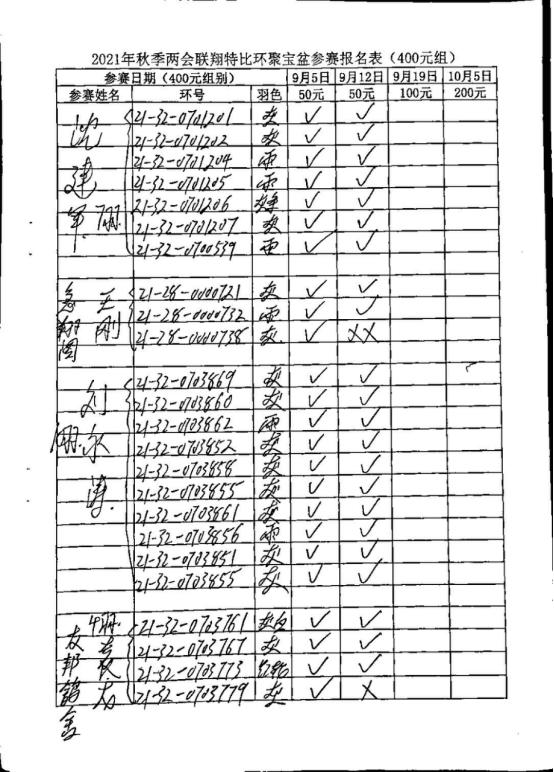 2021年秋季两会联翔特比环聚宝盆参赛报名表（400元组）
参赛日期（400元组别） 9月5日 9月12日 9月19日 10月5日
参赛姓名 环号 羽色 50元 50元 100元 200元
21-32-0701201 灰 ✓ ✓
21-32-0701202 灰 ✓ ✓
21-32-0701204 雨 ✓ ✓
建 21-32-0701205 雨 ✓ ✓
军 21-32-0701206 ✓ ✓
21-32-0701207 灰 ✓ ✓
21-32-0700539 雨 ✓ ✓
王 21-28-0000721 灰 ✓ ✓
翔 刚 21-28-0000732 雨 ✓ ✓
阁 21-28-0000738 灰 ✓ XX
刘 21-32-0703869 灰 ✓ ✓
21-32-0703860 灰 ✓ ✓
21-32-0703862 雨 ✓ ✓
永 21-32-0703852 灰 ✓ ✓
21-32-0703858 灰 ✓ ✓
涛 21-32-0703855 灰 ✓ ✓
21-32-0703861 灰 ✓ ✓
21-32-0703856 雨 ✓ ✓
21-32-0703851 灰 ✓ ✓
21-32-0703855 灰 ✓ ✓
21-32-0703761 灰白 ✓ ✓
友 21-32-0703767 灰 ✓ ✓
邦 21-32-0703773 ✓ ✓
鸽 21-32-0703779 灰 ✓ X
舍